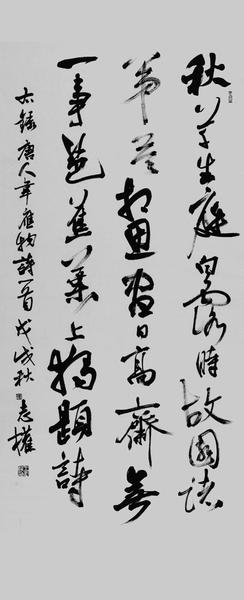 秋草生庭白露時故園諸
弟益相思盡日高齋無
一事芭蕉葉上獨題詩
右錄唐人韋應物詩一首戊戌秋志權